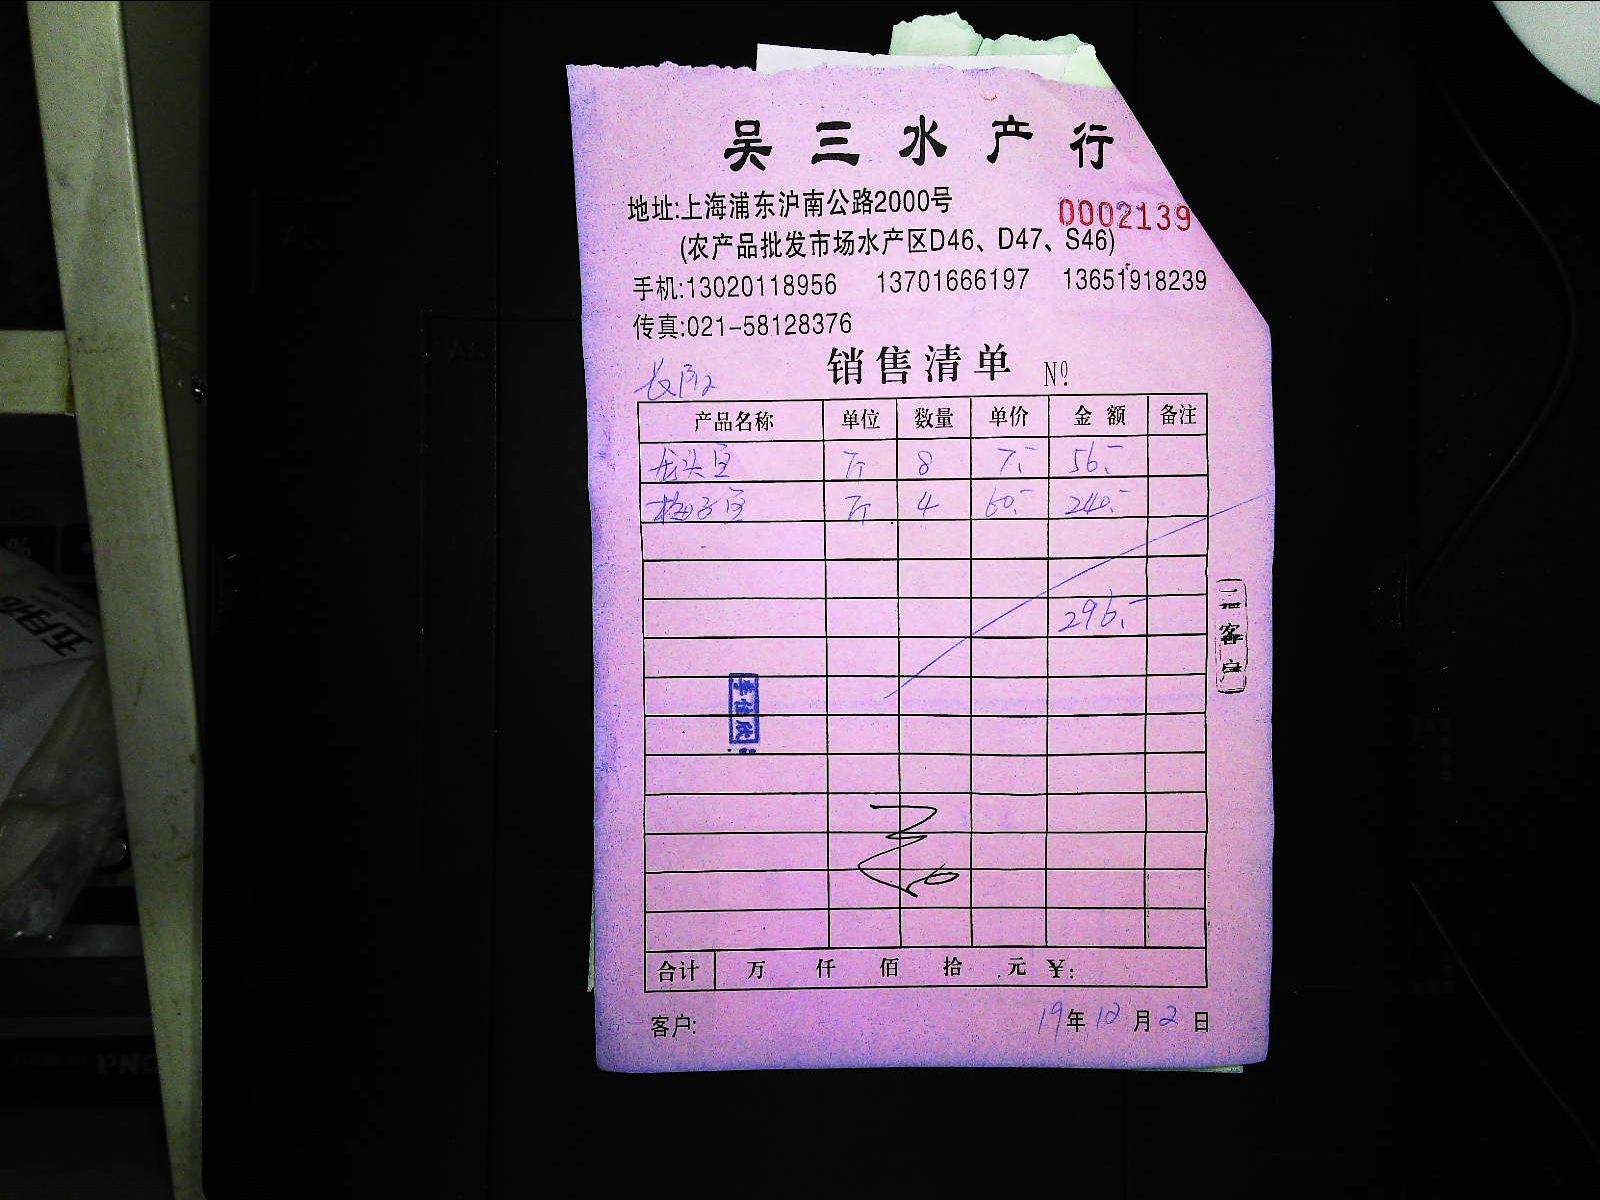 吴三水产行
地址:上海浦东沪南公路2000号
0002139
(农产品批发市场水产区D46、D47、S46)
手机:13020118956 13701666197 13651918239
传真:021-58128376
销售清单 Nº
产品名称 单位 数量 单价 金额 备注
龙头鱼 斤 8 7.- 56.-
梅子鱼 斤 4 60.- 240.-
296.-
二客户
合计 万 仟 佰 拾 元 ¥:
客户:
19年12月2日